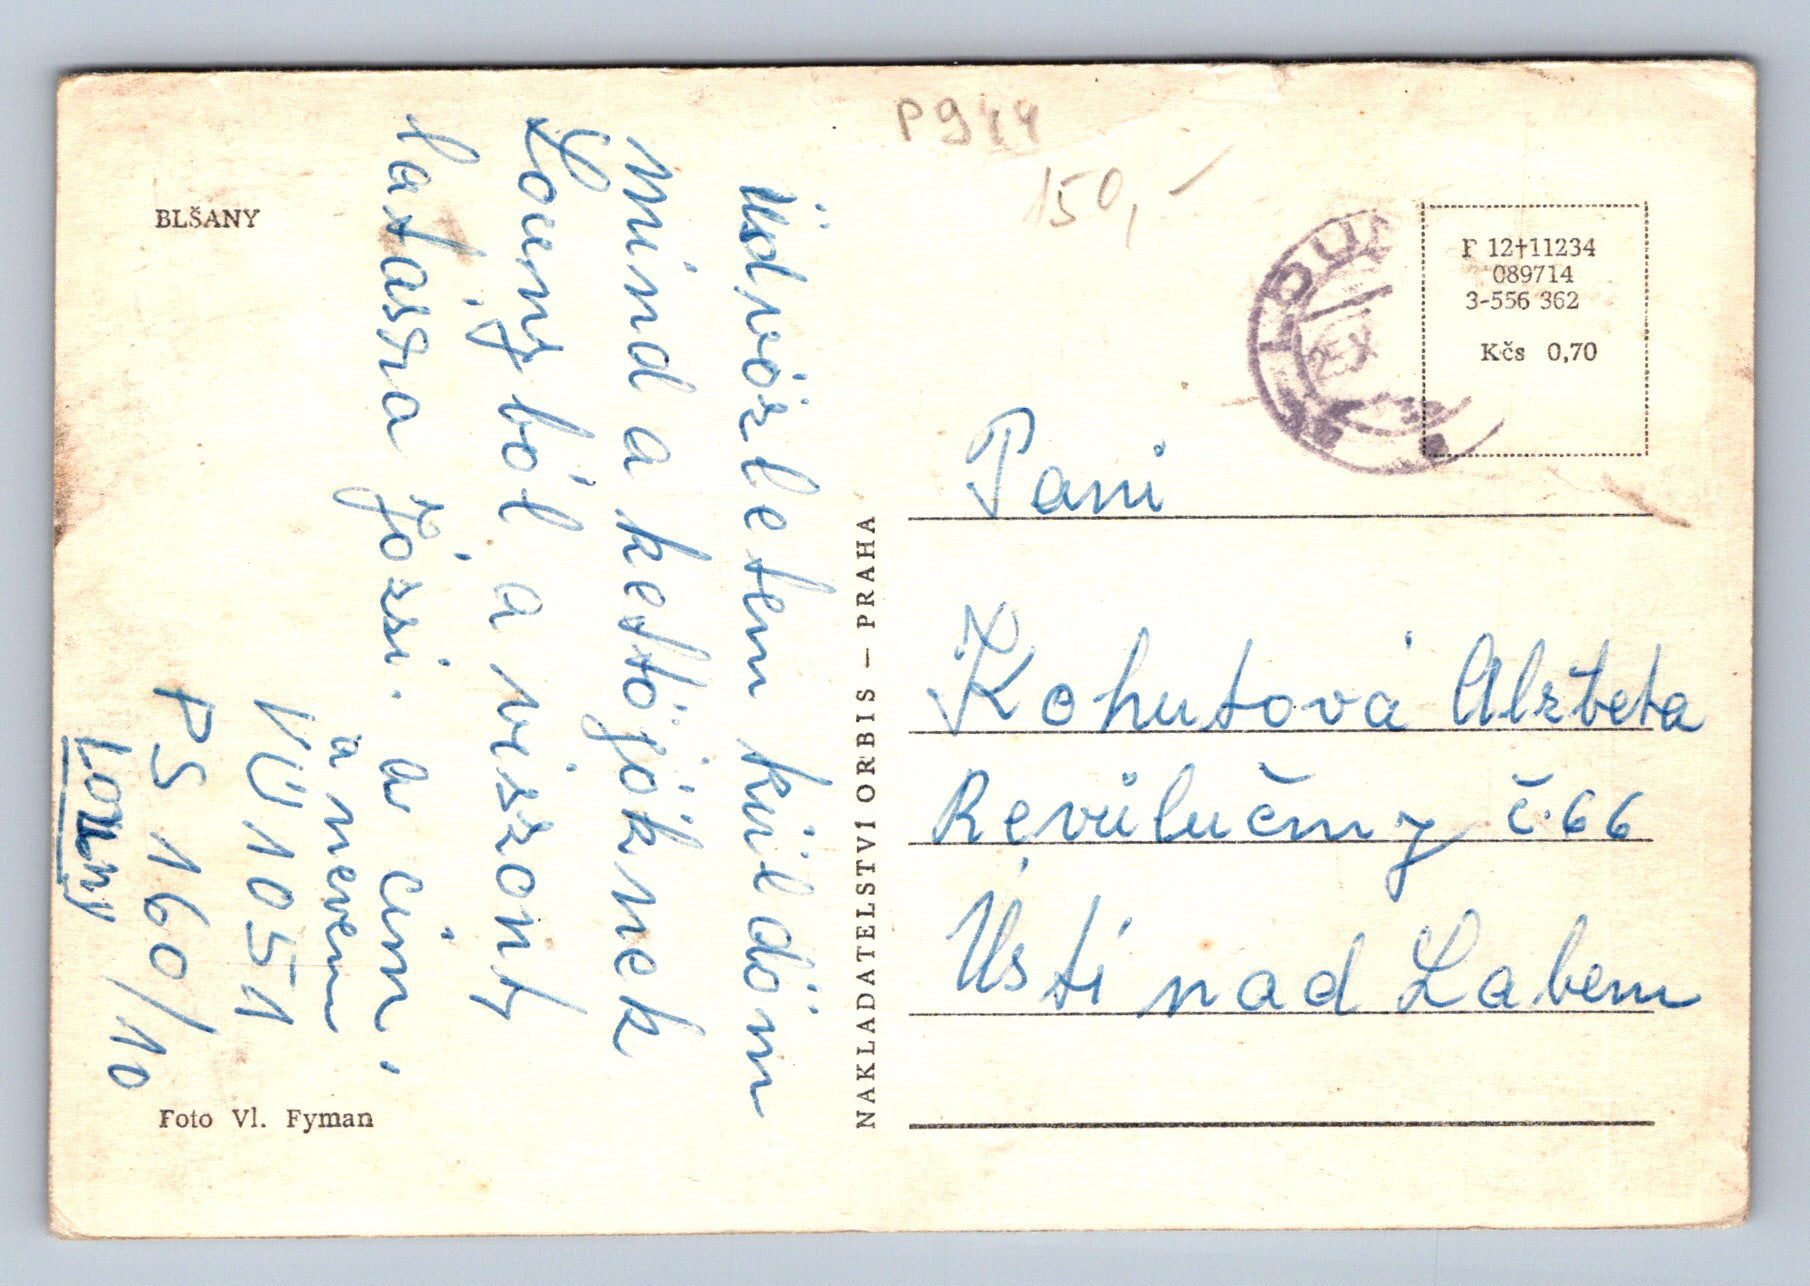 BLŠANY
Üdvözletem küldöm
mind a kettöjöknek
Lounyból a viszont
latásra Józsi. a cim,
a nevem
VÚ 1051
PS 160/10
Louny
Foto Vl. Fyman
NAKLADATELSTVÍ ORBIS – PRAHA
P 944
150,-
LOUN
25.X
F 12†11234
089714
3-556 362
Kčs 0,70
Pani
Kohutová Alžbeta
Revülučmy č.66
Ústí nad Labem